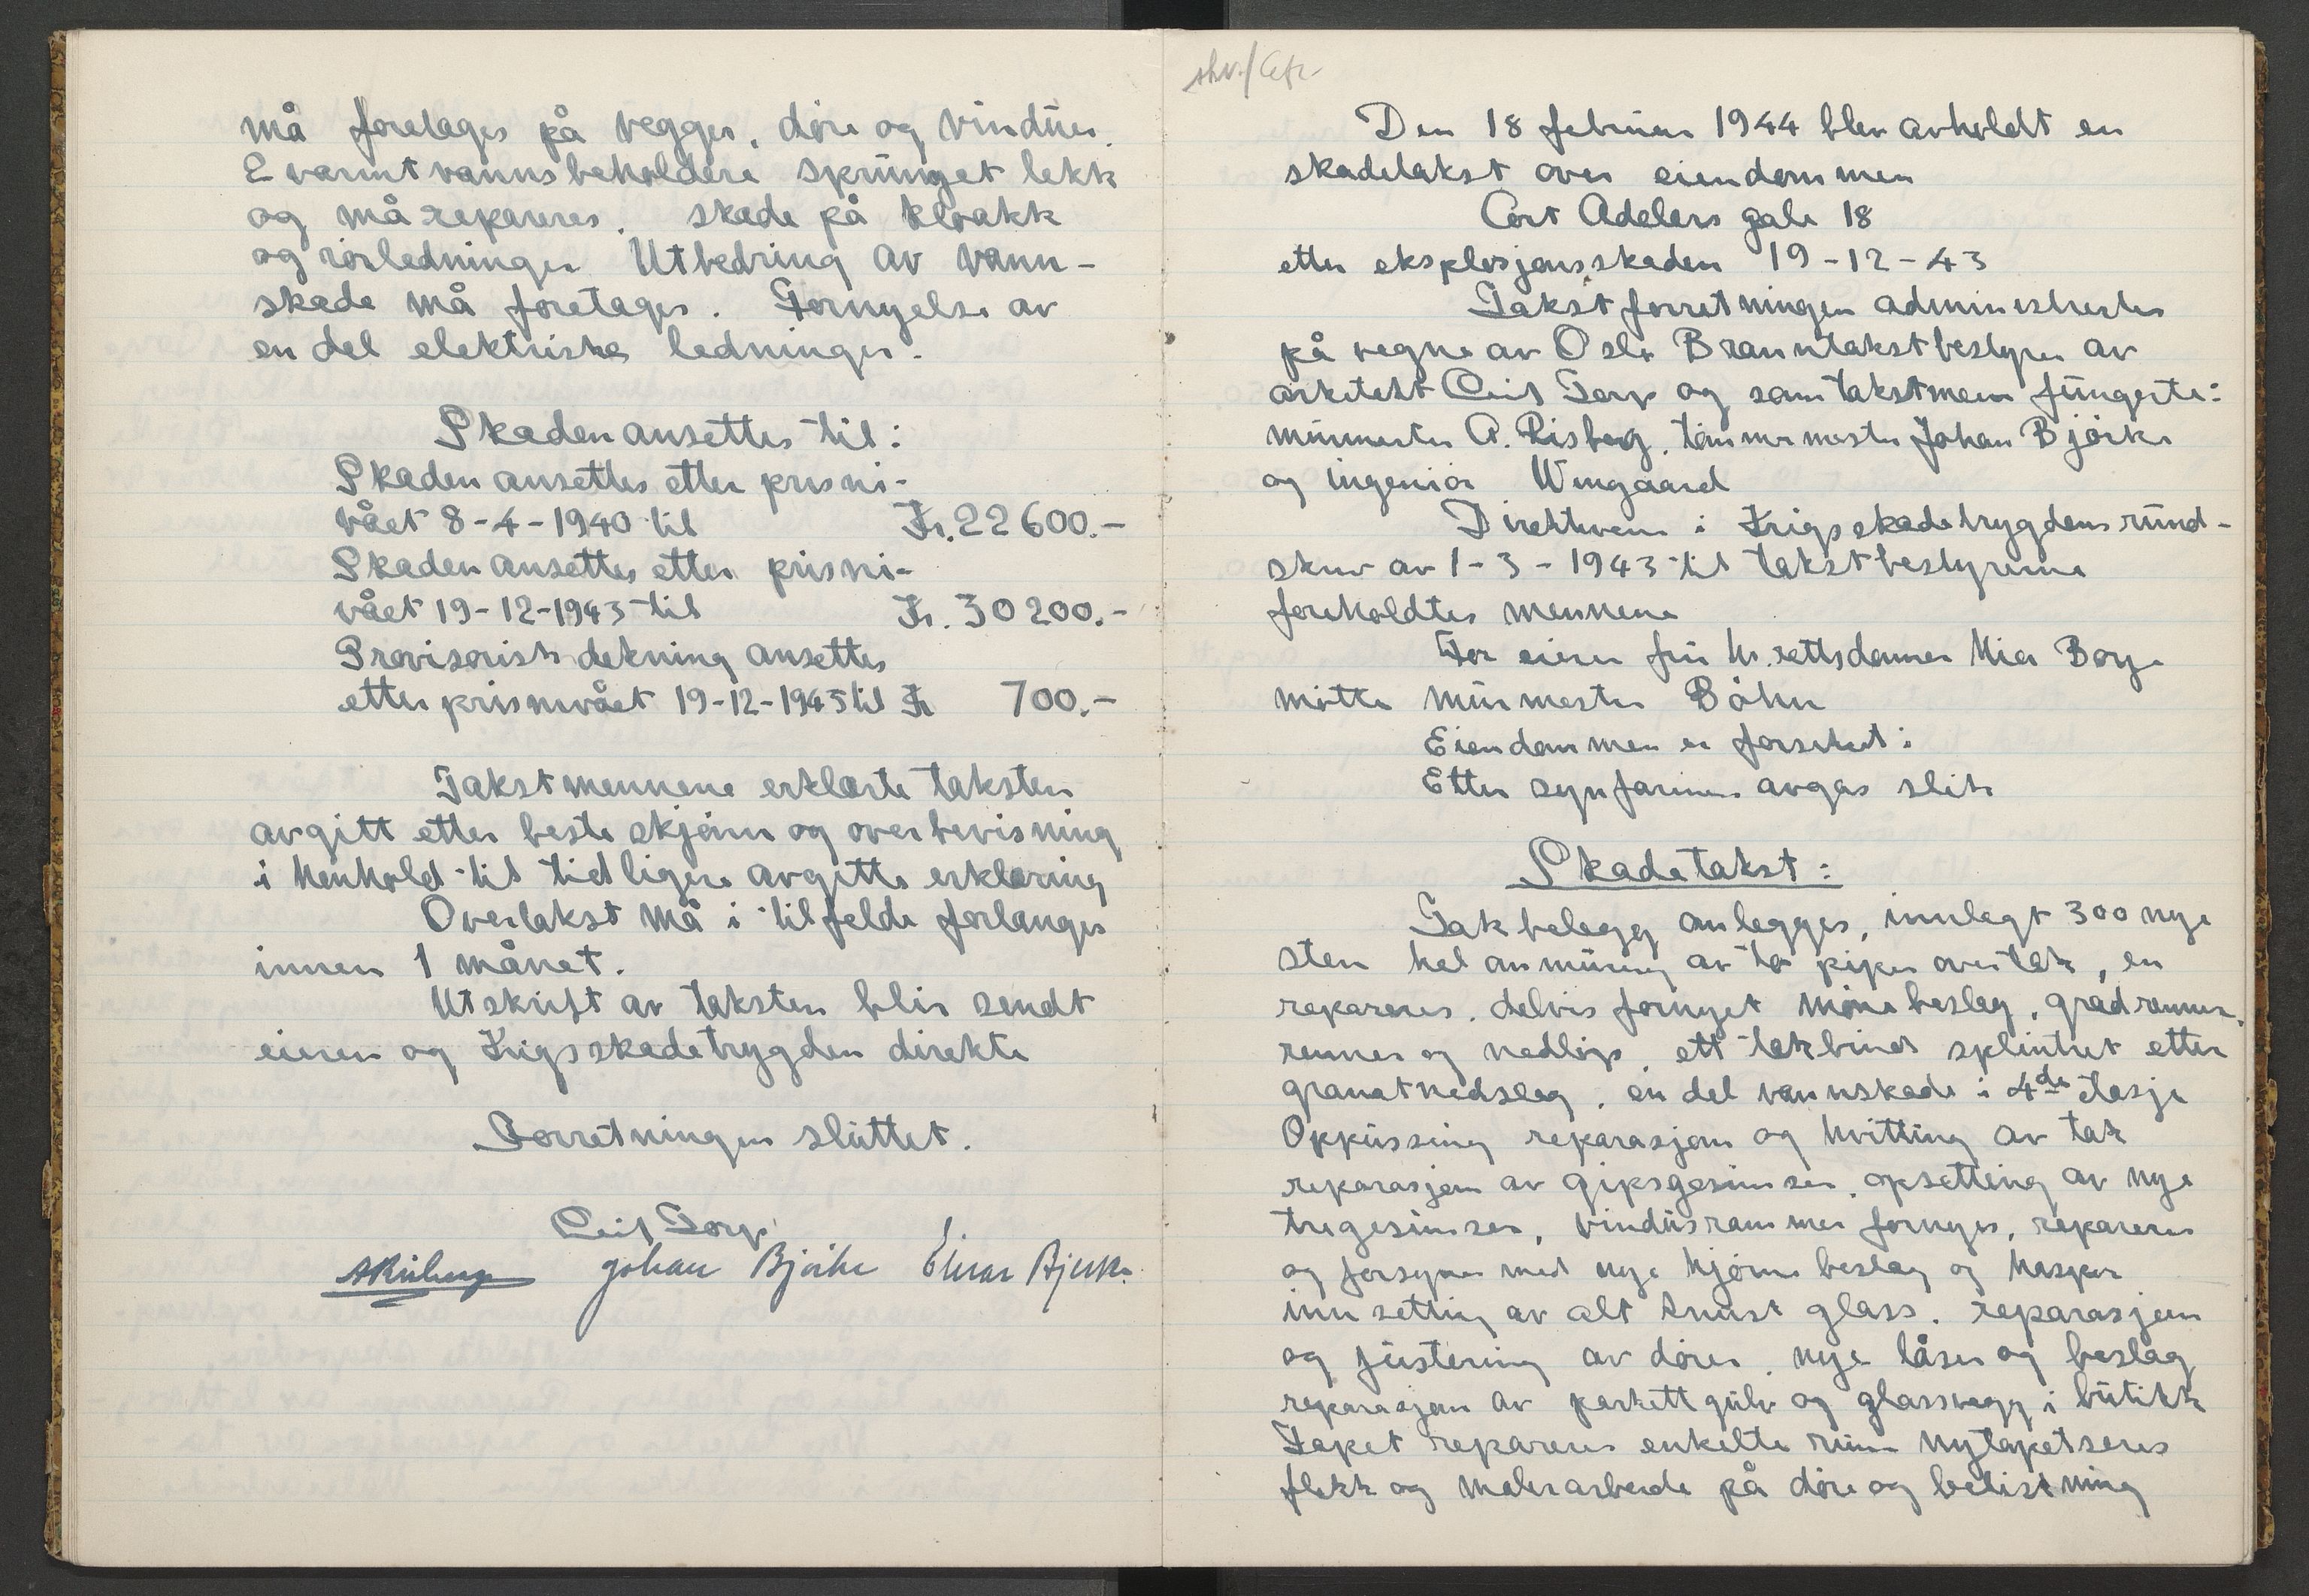 må foretages på vegger, døre og vinduer.
2 varmtvannsbeholdere sprunget lekk
og må repareres. skade på kloakk
og rörledninger Utbedring av vann-
skade må foretages. Fornyelse av
en del elektriske ledninger.
Skaden ansettes til:
Skaden ansettes etter prisni-
vået 8-4-1940 til Kr. 22600.-
Skaden ansettes etter prisni-
vået 19-12-1943 til Kr. 30200.-
Provisorisk dekning ansettes
etter prisnivået 19-12-1943 til Kr 700.-
Takstmennene erklærte taksten
avgitt etter beste skjønn og overbevisning
i henhold til tidligere avgitte erklæring
Overtakst må i tilfelde forlanges
innen 1 månet.
Utskrift av taksten blir sendt
eieren og Krigsskadetrygden direkte
Forretningen sluttet.
Leif Torp
Johan Bjørke Einar Bjerke
skv./
Den 18 februar 1944 blev avholdt en
skadetakst over eiendommen
Cort Adelers gate 18
etter eksplosjonsskaden 19-12-43
Takstforretningen administrertes
på vegne av Oslo Branntakstbestyrer av
arkitekt Leif Torp og som takstmenn fungerte:
murmester A. Risberg, tömmermester Johan Björke
og ingeniör Wingaard
Direktivene i Krigsskadetrygdens rund-
skriv av 1-3-1943 til takstbestyrerne
foreholdtes mennene
For eieren fru h.rettsdommer Mia Boye
mötte murmester Böhn
Eiendommen er forsikret:
Etter synfaringen avgås slik
Skadetakst:
Takbelegg omlegges, innlagt 300 nye
sten hel ommuring av to piper over tak, en
repareres. delvis fornyet mönebeslag, gradrenner,
renner og nedlöp, ett takbind splintret etter
granatnedslag, en del vannskade i 4de etasje
Oppussing reparasjon og hvitting av tak
reparasjon av gipsgesimser, opsetting av nye
tregesimser, vindusrammer fornyes, repareres
og forsynes med nye hjørnebeslag og hasper
innsetting av alt knust glass. reparasjon
og justering av dører, nye låser og beslag
reparasjon av parkettgulv og glassvegg i butikk
Tapet repareres enkelte rum nytapetseres
flekk og malerarbeide på døre og belistning